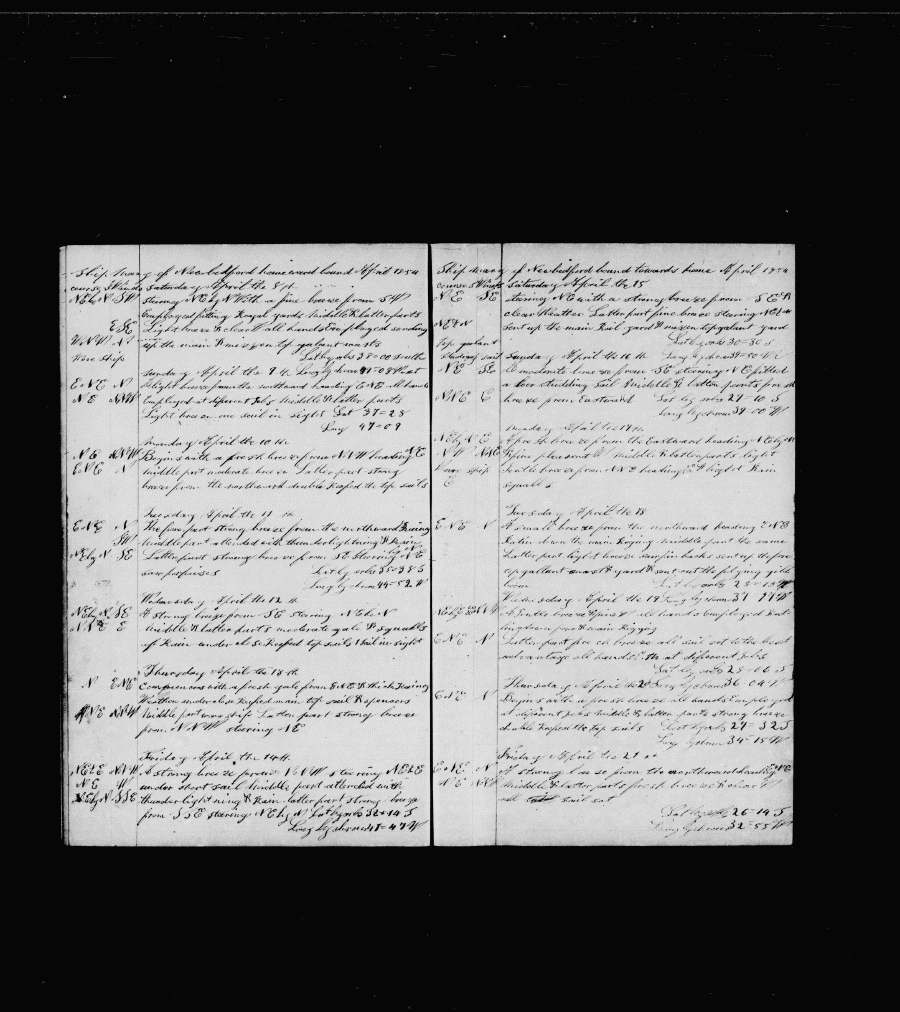 Ship Mary of Newbedford homeward bound April 1854
courses Winds Saturday April the 8 th
NE by N SW steering NE by N With a fine breeze from SW
Employed fitting Royal yards Middle & latter parts
E SE Light breeze & clear W all hands Employed sending
N up the main & mizen top galant masts
Wore ship Lat by obs 38=00 South
Sunday April the 9 th Long by chron 47=08 West
ENE N light breeze from the northward heading ENE all hands
NE NNW Employed at different Jobs Middle & latter parts
Light breeze one sail in sight Lat 37=28
Long 47=09
Monday April the 10 th
NE NNW Begins with a fresh breeze from NNW heading NE
ENE N Middle part moderate breeze Latter part strong
breeze from the northward double Reefed the top sails
Tuesday April the 11 th
ENE N The fore part strong breeze from the northward & Rainy
SW Middle part attended with thunder lightning & Rain
NE by N SE Latter part strong breeze from SE Steering NE by N
saw porpoises Lat by obs 35=38 S
Long by chron 44=52 W
Wednesday April the 12 th
NE by N SE A strong breeze from SE steering NE by N
NNE E Middle & latter parts moderate gale & squalls
of Rain under close Reefed top sails 1 Sail in sight
Thursday April the 13 th
N ENE Commences with a fresh gale from ENE & thick Rainy
Weather under close Reefed main top sail & spencers
NE NNW Middle part wore ship Latter part strong breeze
from NNW steering NE
Friday April the 14 th
NE&E NNW A strong breeze from NNW steering NE&E
NE W under short sail Middle part attended with
NE by N SSE thunder light ning & Rain latter part strong breeze
from SSE steering NE by N Lat by obs 32=14 S
Long by chron 41=47 W
Ship Mary of Newbedford bound towards home April 1854
courses Winds Saturday April the 15
NE SE steering NE with a strong breeze from SE &
clear Weather Latter part fine breeze steering NE by N
sent up the main Roil yard & mizen top galant yard
top galant Lat by obs 30=30 S
studing sail Sunday April the 16 th Long by chron 39=50 W
NE SE A moderate breeze from SE steering NE fitted
a boom studding sail Middle & latter parts fresh
NNE E breeze from Eastward Lat by obs 29=10 S
Long by chron 39=00 W
Monday April the 17 th
NE by N E A fresh breeze from the Eastward heading NE by N
N NNE & fine pleasant W Middle & latter parts light
Wore ship Gentle breeze from NNE heading E & light Rain
E squalls
Tuesday April the 18
ENE N A small breeze from the northward heading ENE
Ratlin down the main Riging Middle part the same
Latter part light breeze sent up the fore
top gallant mast & yard & sent out the flying gibb
boom Lat by obs 28=15
Wednesday April the 19 Long by chron 37
A Gentle breeze all hands Employed
fore & main Rigging
ENE N Latter part fresh breeze all sail set to the best
advantage all hands at different Jobs
Lat by obs 28=00 S
Thursday April the 20 Long by chron 36=04 W
ENE N Begins with a fresh breeze all hands Employed
at different Jobs Middle & latter parts strong breeze
double Reefed the top sails Lat by obs 27=32 S
Long by chron 34=15 W
Friday April the 21 st
ENE N A strong breeze from the northward heading ENE
NE NNW Middle & latter parts fresh breeze & clear W
all sail set
Lat by obs 26=14 S
Long by chron 32=55 W